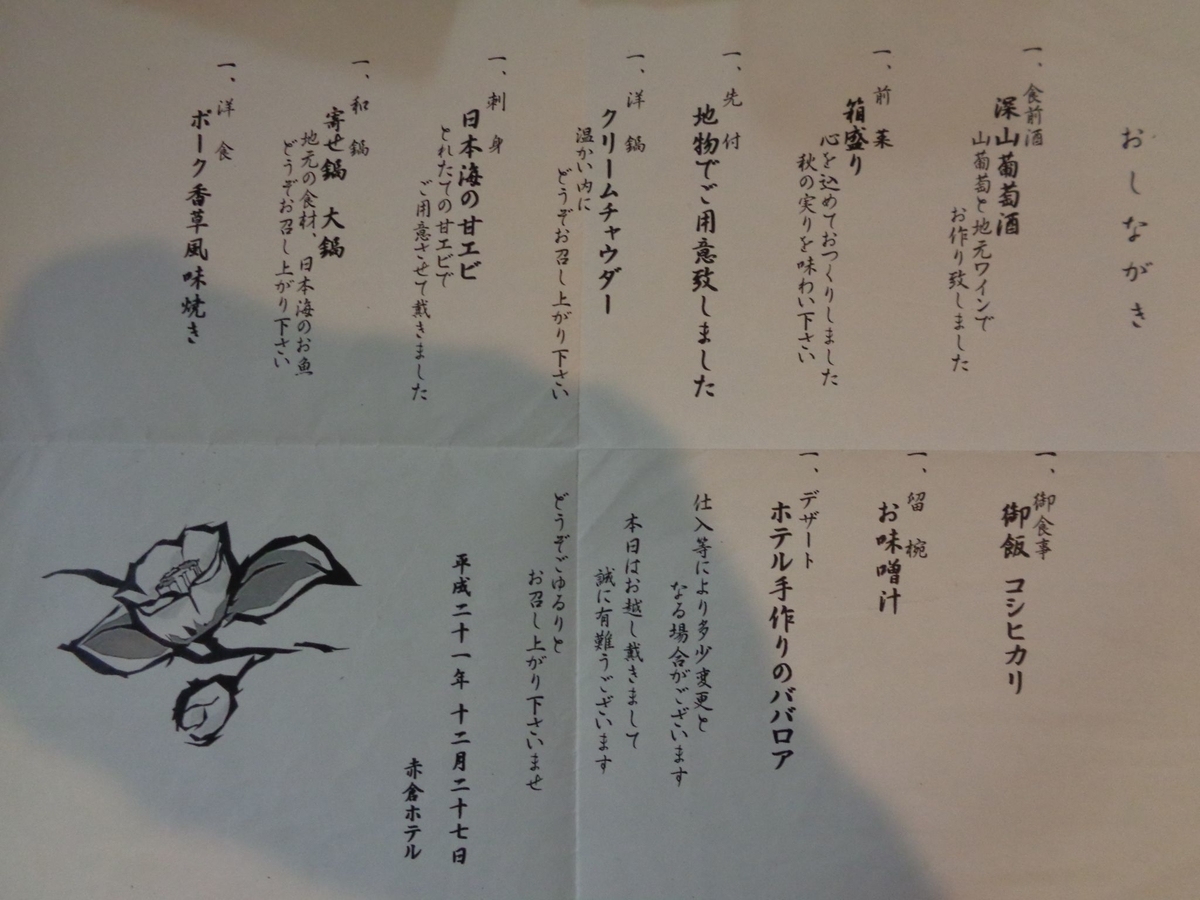 おしながき
一、食前酒
深山葡萄酒
山葡萄と地元ワインで
お作り致しました
一、前菜
箱盛り
心を込めておつくりしました
秋の実りを味わい下さい
一、先付
地物でご用意致しました
一、洋鍋
クリームチャウダー
温かい内に
どうぞお召し上がり下さい
一、刺身
日本海の甘エビ
とれたての甘エビで
ご用意させて戴きました
一、和鍋
寄せ鍋 大鍋
地元の食材、日本海のお魚
どうぞお召し上がり下さい
一、洋食
ポーク香草風味焼き
一、御食事
御飯 コシヒカリ
一、留椀
お味噌汁
一、デザート
ホテル手作りのババロア
仕入等により多少変更と
なる場合がございます
本日はお越し戴きまして
誠に有難うございます
どうぞごゆるりと
お召し上がり下さいませ
平成二十一年 十二月二十七日
赤倉ホテル